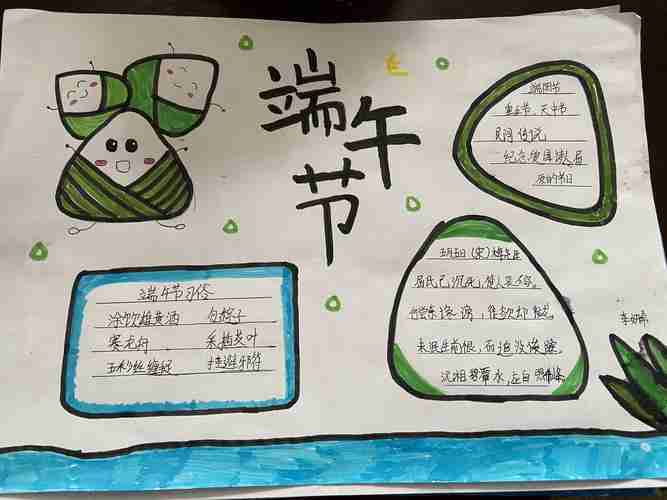 端午节
端阳节
重五节、天中节
民间传说
纪念爱国诗人屈
原的节日
五月五日 (宋) 梅尧臣
屈氏已沉死,楚人哀不容。
何尝奈谗谤,徒欲却蛟龙。
未泯生前恨,而追没后踪。
沅湘碧潭水,应自照千峰。
端午节习俗
涂饮雄黄酒 包粽子
赛龙舟 采插艾叶
五彩丝缠 挂避邪符